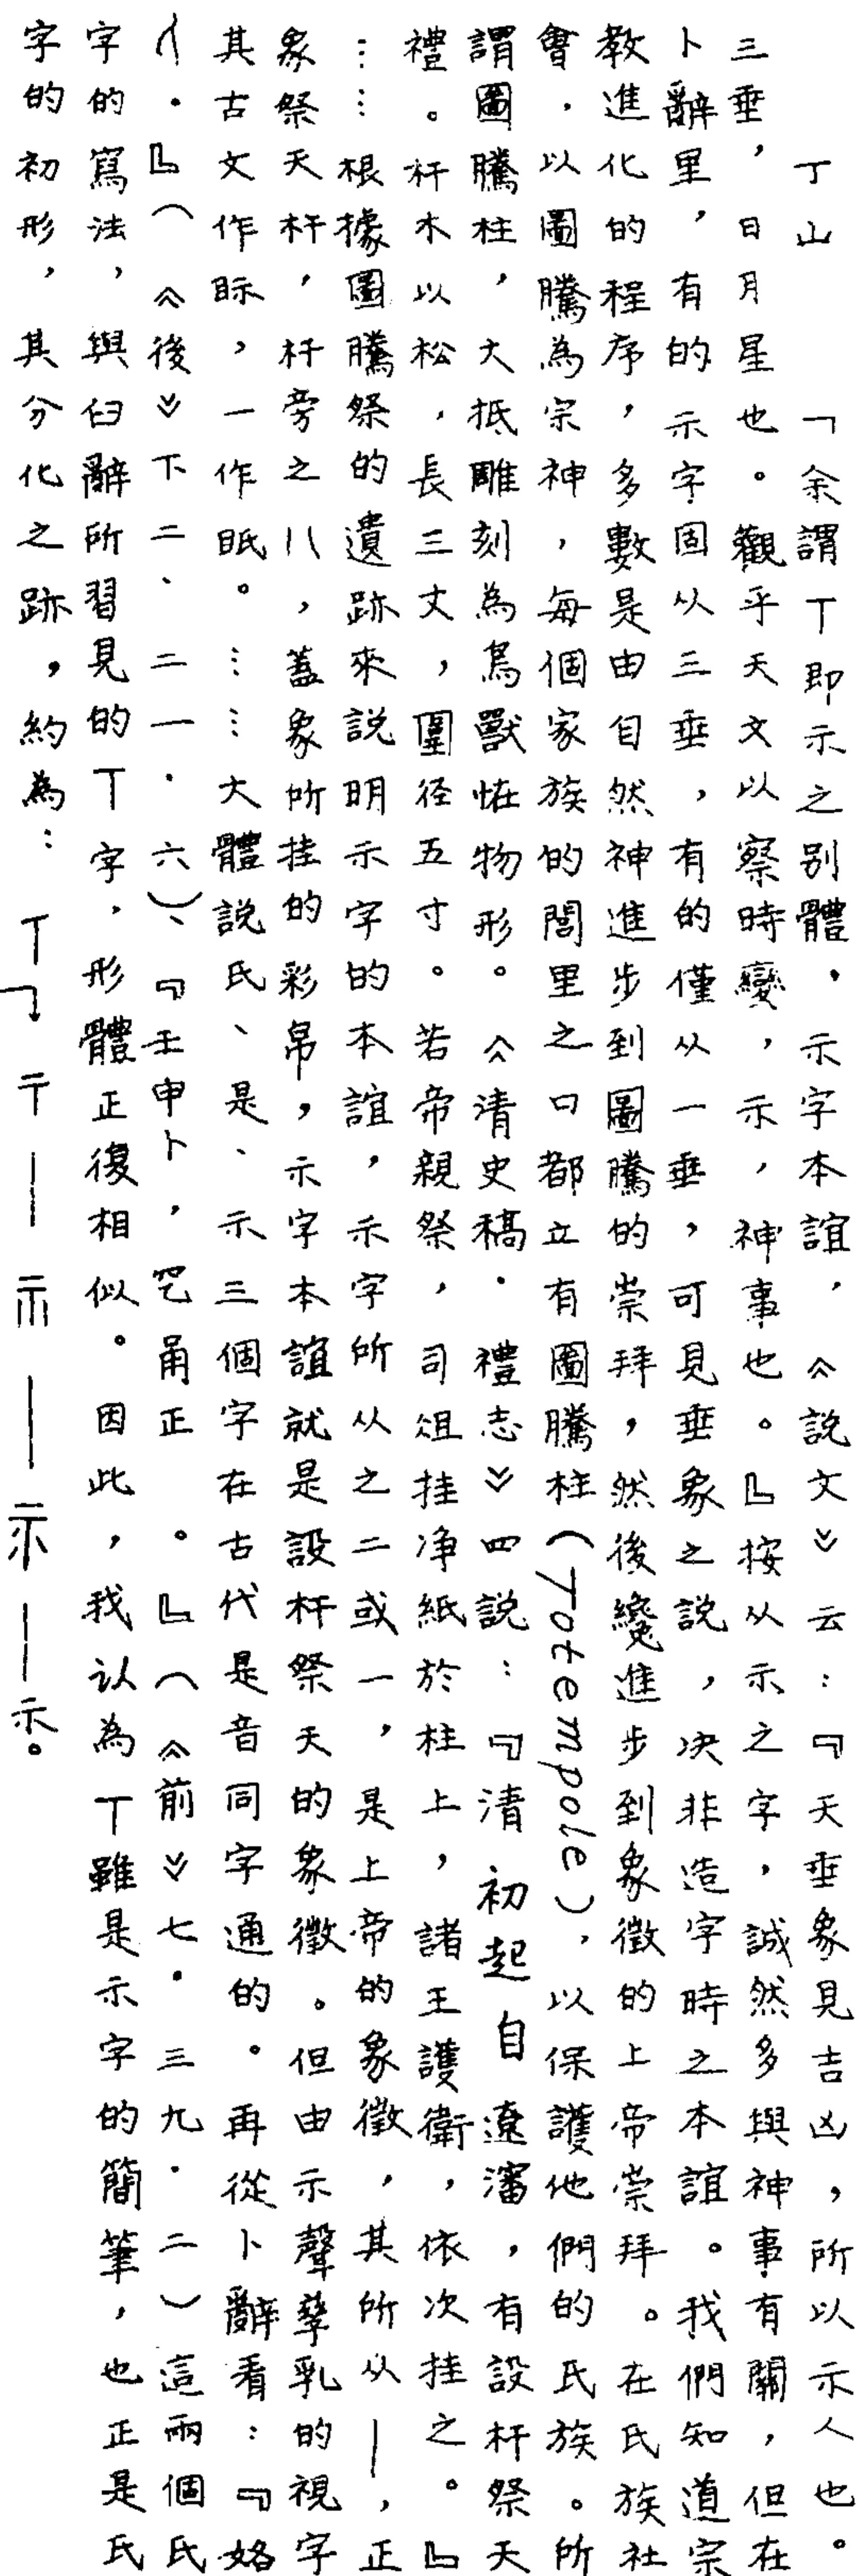 丁山　「余謂丅即示之別體．示字本誼，《說文》云：『天垂象見吉凶，所以示人也。
三垂，日月星也。觀乎天文以察時變，示，神事也。』按从示之字，誠然多與神事有關，但在
卜辭里，有的示字固从三垂，有的僅从一垂，可見垂象之說，決非造字時之本誼。我們知道宗
教進化的程序，多數是由自然神進步到圖騰的崇拜，然後纔進步到象徵的上帝崇拜。在氏族社
會．以圖騰為宗神，每個家族的閭里之口都立有圖騰柱(Totempole)，以保護他們的氏族。所
謂圖騰柱，大抵雕刻為鳥獸恠物形。《清史稿．禮志》四說：『清初起自遼瀋，有設杆祭天
禮。杆木以松，長三丈，圍径五寸。若帝親祭，司俎挂净紙於柱上，諸王護衛，依次挂之。』
……根據圖騰祭的遺跡來說明示字的本誼，示字所从之二或一，是上帝的象徵，其所从丨，正
象祭天杆，杆旁之八，蓋象所挂的彩帛，示字本誼就是設杆祭天的象徵。但由示聲孳乳的視字
其古文作眎，一作眂。……大體說氏、是、示三個字在古代是音同字通的。再從卜辭看：『姳
．』（《後》下二、二一．六）、『壬申卜，甪正　。』（《前》七．三九．二）這兩個氏
字的寫法，與臼辭所習見的丅字，形體正復相似。因此，我认為丅雖是示字的簡筆，也正是氏
字的初形，其分化之跡，約為：丅